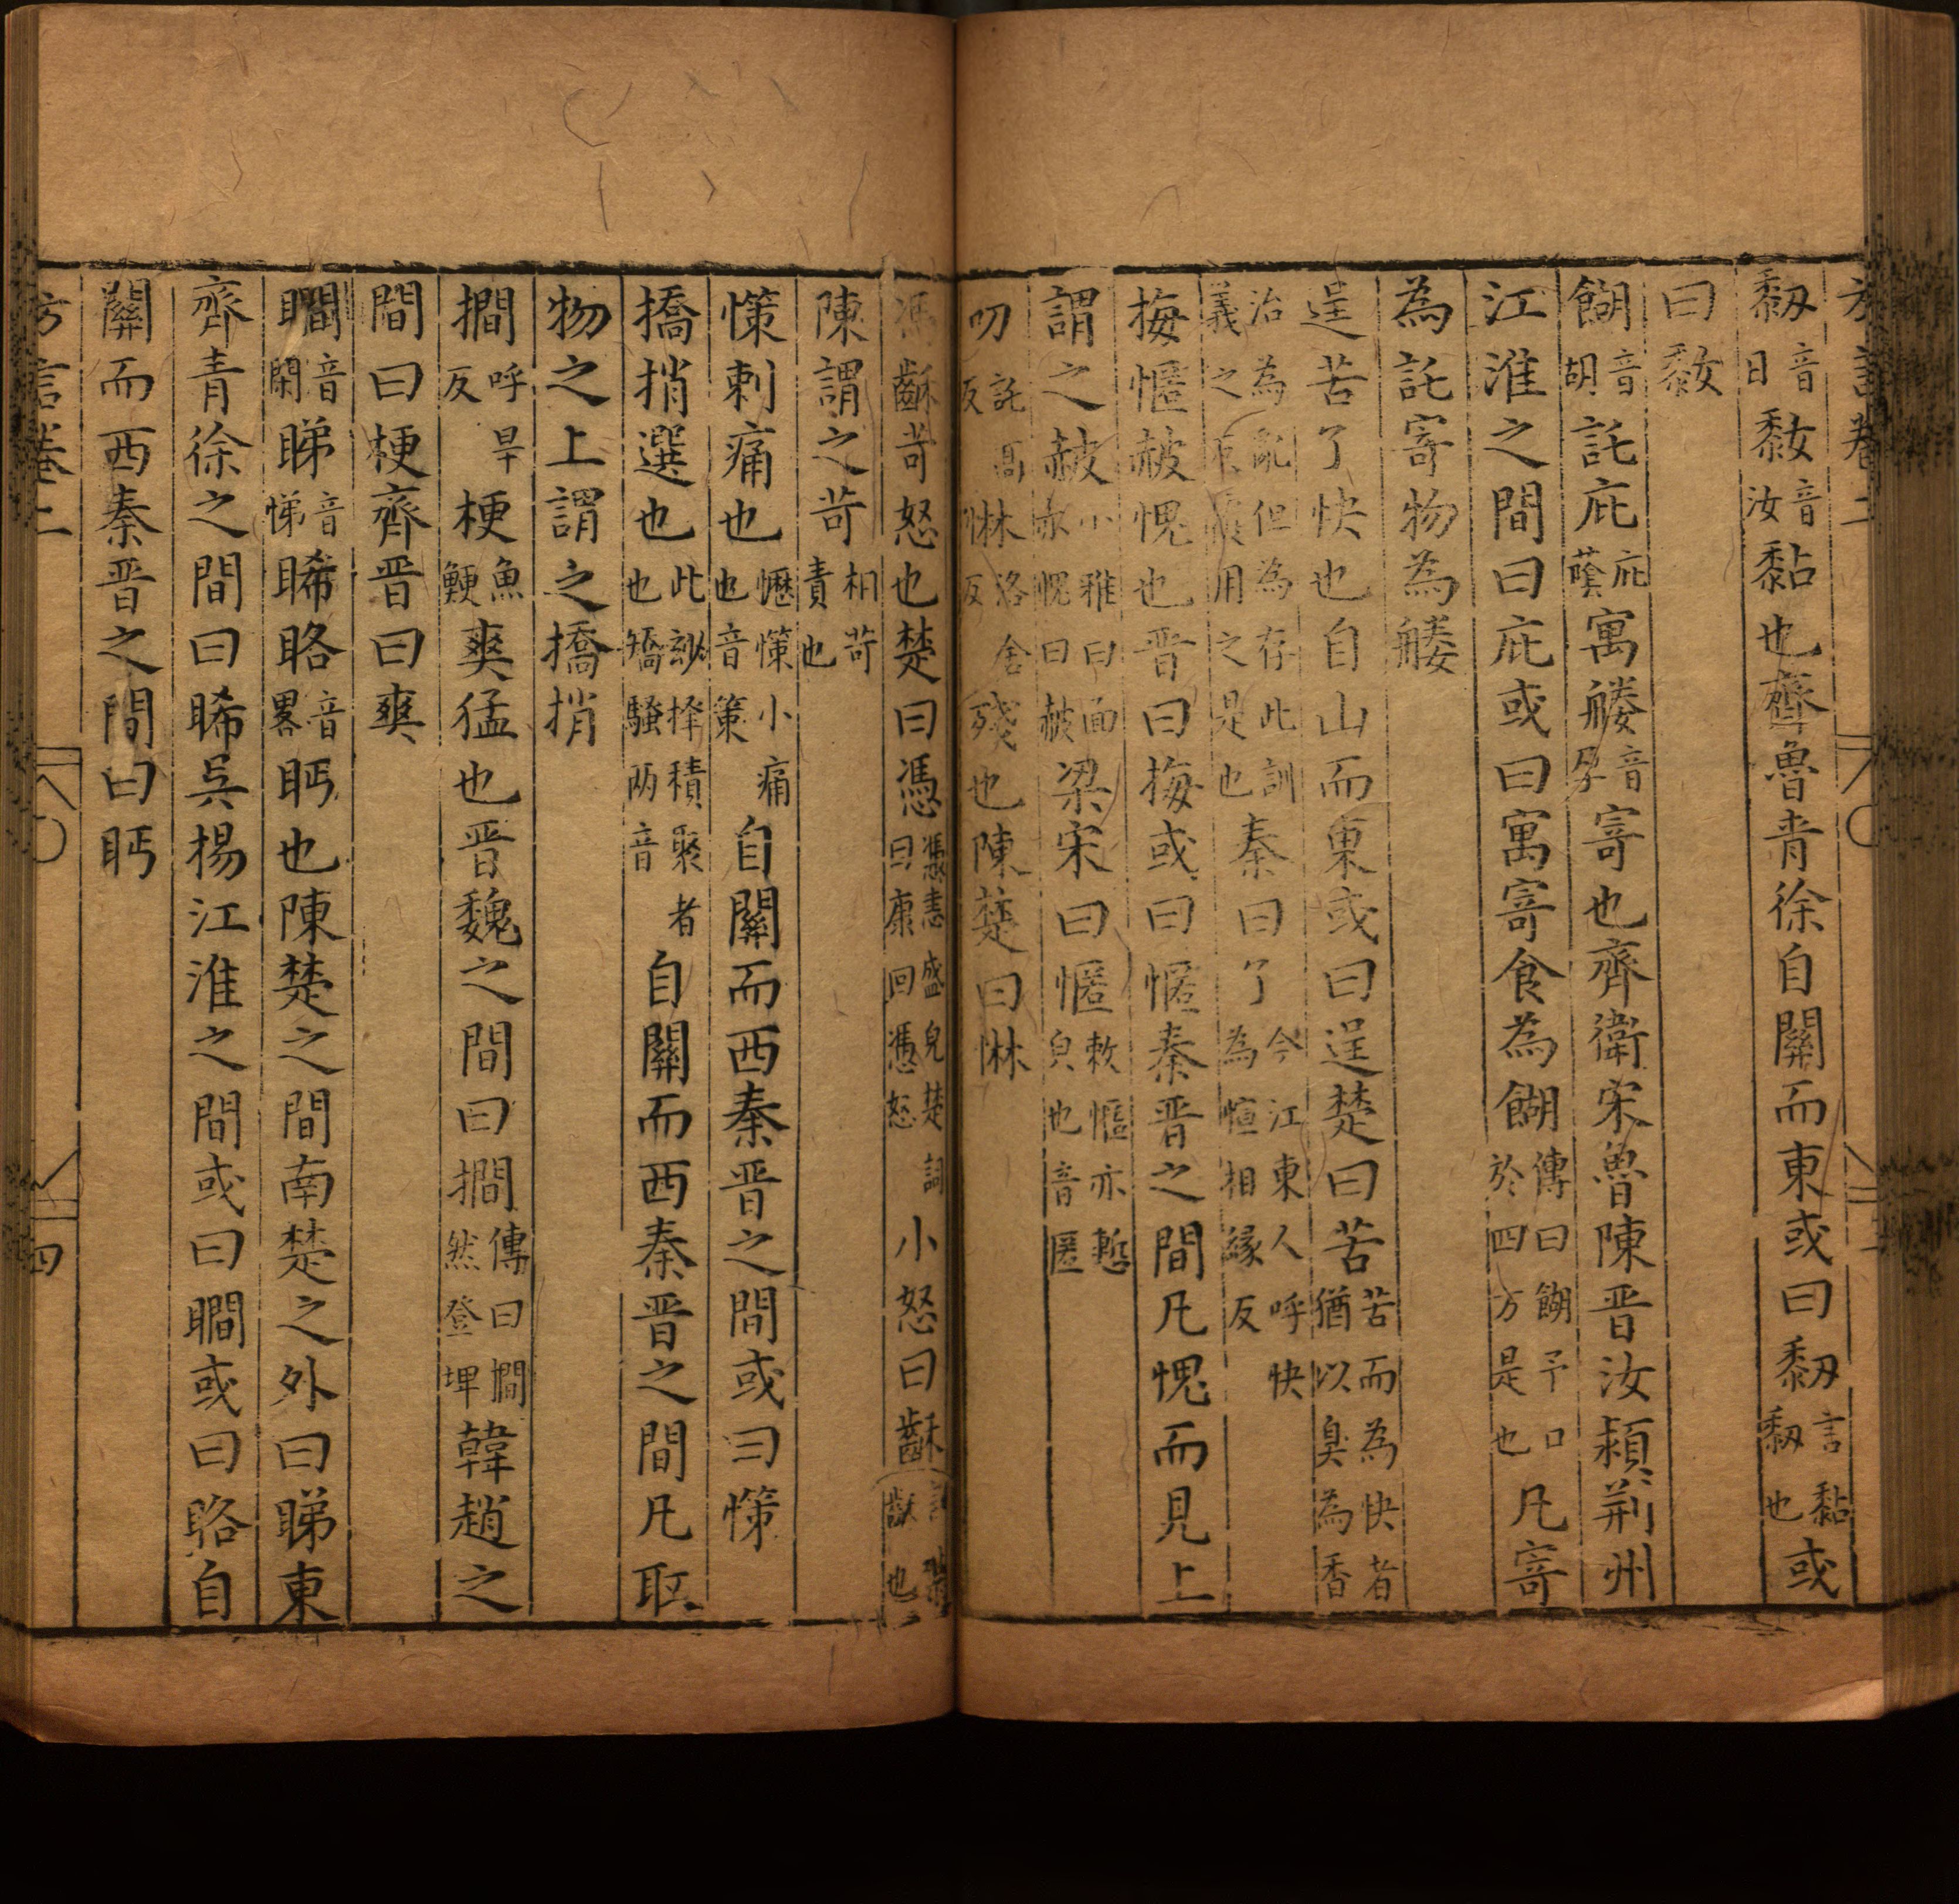 䵒音日䵑音汝黏也齊魯青徐自關而東或曰䵒言黏䵒也或
曰䵑
餬音胡託庇庇蔭寓艛音孕寄也齊衛宋魯陳晉汝潁荊州
江淮之間曰庇或曰寓寄食為餬傳曰餬予口於四方是也凡寄
為託寄物為艛
逞苦了快也自山而東或曰逞楚曰苦苦而為快者猶以臭為香
治為亂但為存此訓義之用之是也秦曰了今江東人呼快為愃相緣反
挴㥾赧愧也晉曰挴或曰㥾秦晉之間凡愧而見上
謂之赧小雅曰面赤愧曰赧梁宋曰㥾敕慪亦慙皃也音匿
叨託高反惏洛含反殘也陳楚曰惏
馮齘苛怒也楚曰憑憑恚盛皃楚詞曰康回憑怒小怒曰齘
陳謂之苛相苛責也
憡刺痛也㦄憡小痛也音策自關而西秦晉之間或曰憡
撟捎選也此訬擇積聚者也矯騷兩音自關而西秦晉之間凡取
物之上謂之撟捎
撊呼旱反梗魚鯁爽猛也晉魏之間曰撊傳曰撊然登埤韓趙之
間曰梗齊晉曰爽
瞯音閑睇音悌睎眳音畧眄也陳楚之間南楚之外曰睇東
齊青徐之間曰睎吳揚江淮之間或曰瞯或曰眳自
關而西秦晉之間曰眄
方言卷二
四